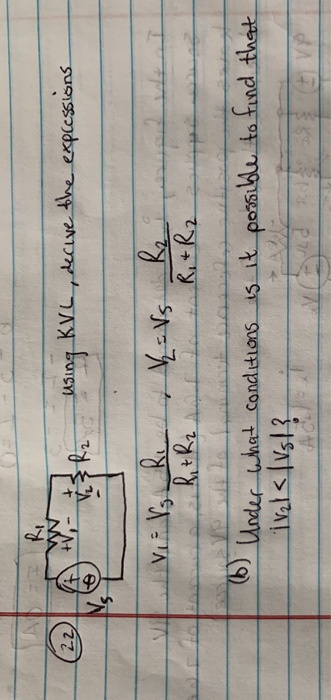 22
R1
+V1-
+
V2
-
R2
+
Vs
using KVL, derive the expressions
V1 = Vs R1/R1+R2 , V2 = Vs R2/R1+R2
(b) Under what conditions is it possible to find that
|V2| < |Vs|?